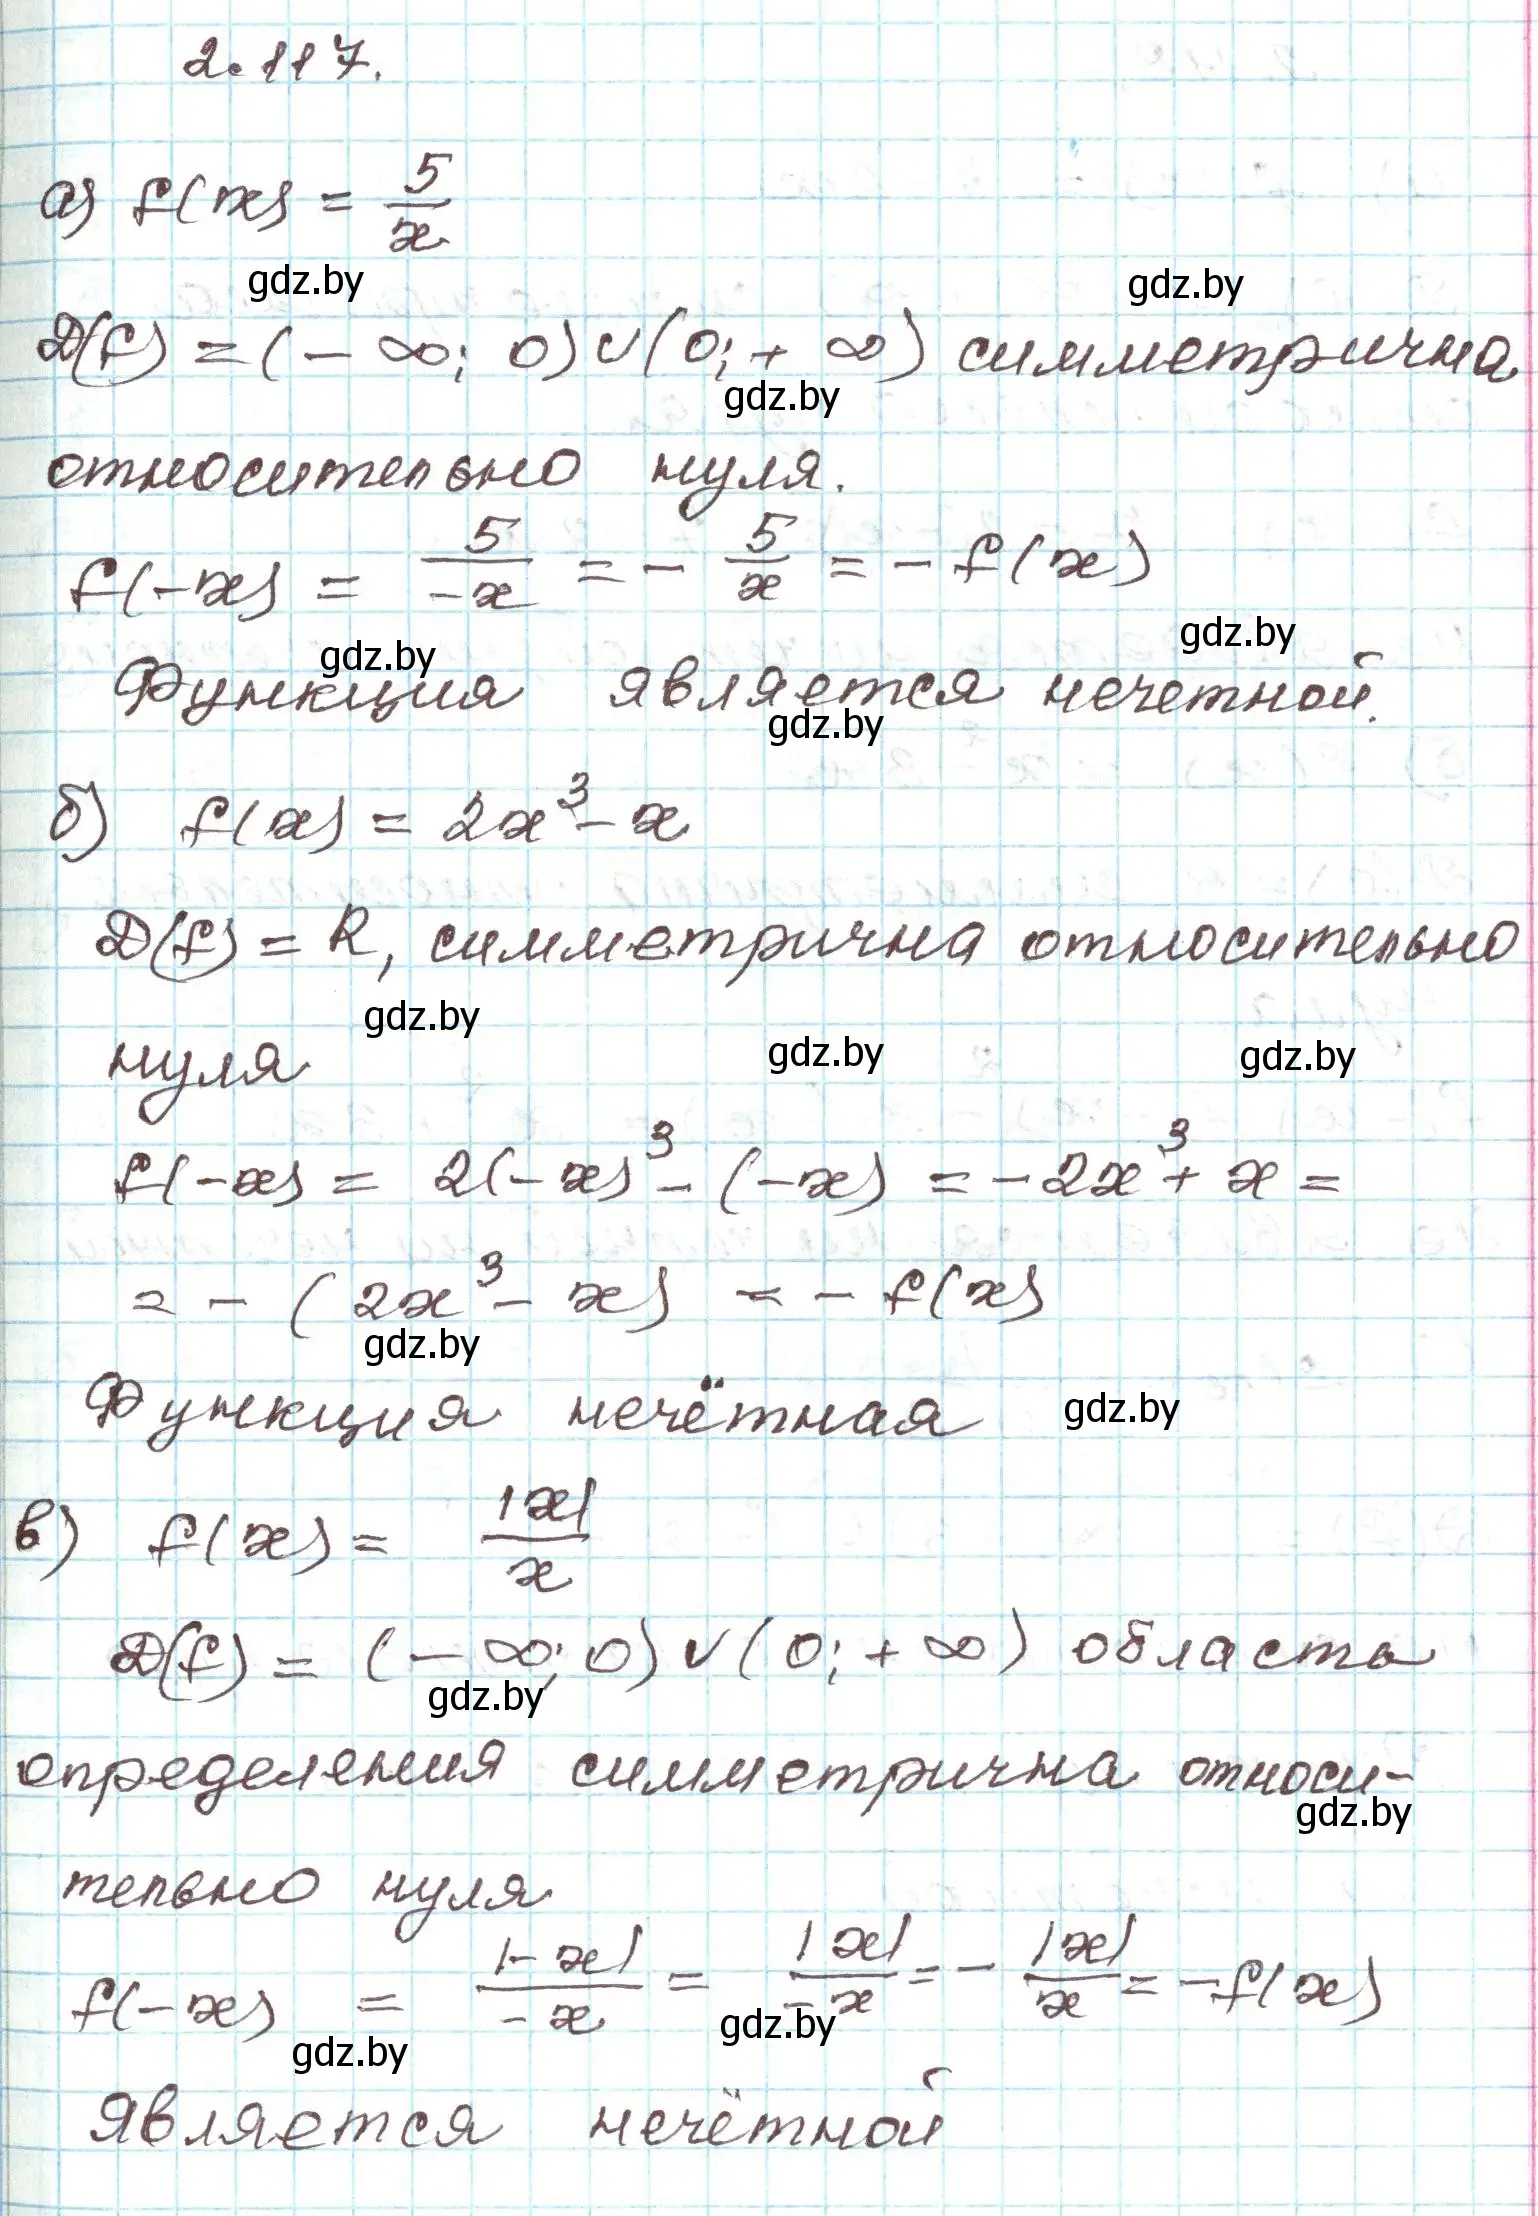 2.117.
а) f(x) = 5/x
gdz.by gdz.by
D(f) = (-∞; 0)∪(0; +∞) симметрична
gdz.by
относительно нуля.
f(-x) = 5/-x = - 5/x = - f(x)
gdz.by gdz.by
Функция является нечетной.
gdz.by
б) f(x) = 2x³ - x
D(f) = R, симметрична относительно
gdz.by gdz.by gdz.by
нуля
f(-x) = 2(-x)³ - (-x) = -2x³ + x =
= - (2x³ - x) = - f(x)
gdz.by
Функция нечётная gdz.by
в) f(x) = |x|/x
D(f) = (-∞; 0)∪(0; +∞) область
gdz.by
определения симметрична относи-
gdz.by
тельно нуля
f(-x) = |-x|/-x = |x|/-x = - |x|/x = -f(x)
gdz.by gdz.by
является нечётной